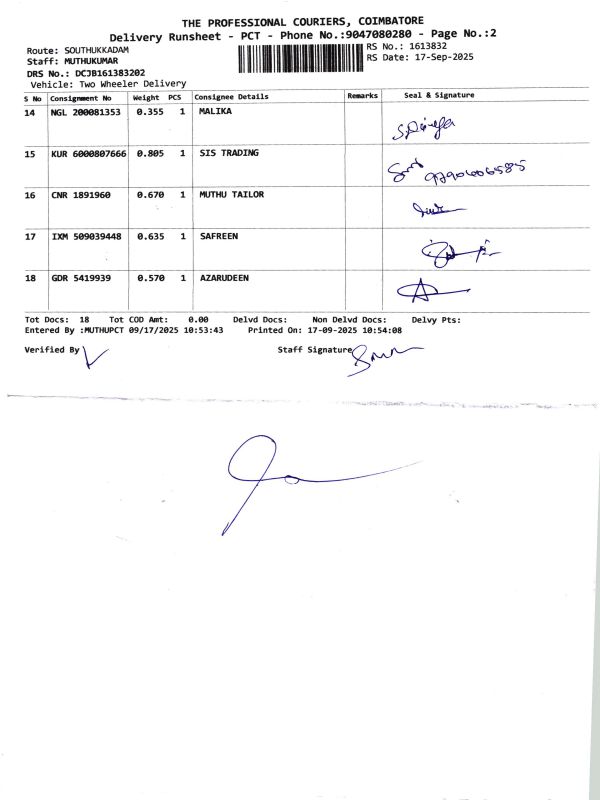 THE PROFESSIONAL COURIERS, COIMBATORE
Delivery Runsheet - PCT - Phone No.:9047080280 - Page No.:2
Route: SOUTHUKKADAM
RS No.: 1613832
Staff: MUTHUKUMAR
RS Date: 17-Sep-2025
DRS No.: DCJB161383202
Vehicle: Two Wheeler Delivery
S No Consignment No Weight PCS Consignee Details Remarks Seal & Signature
14 NGL 200081353 0.355 1 MALIKA
15 KUR 6000807666 0.805 1 SIS TRADING
16 CNR 1891960 0.670 1 MUTHU TAILOR
17 IXM 509039448 0.635 1 SAFREEN
18 GDR 5419939 0.570 1 AZARUDEEN
Tot Docs: 18 Tot COD Amt: 0.00 Delvd Docs: Non Delvd Docs: Delvy Pts:
Entered By :MUTHUPCT 09/17/2025 10:53:43 Printed On: 17-09-2025 10:54:08
Verified By Staff Signature